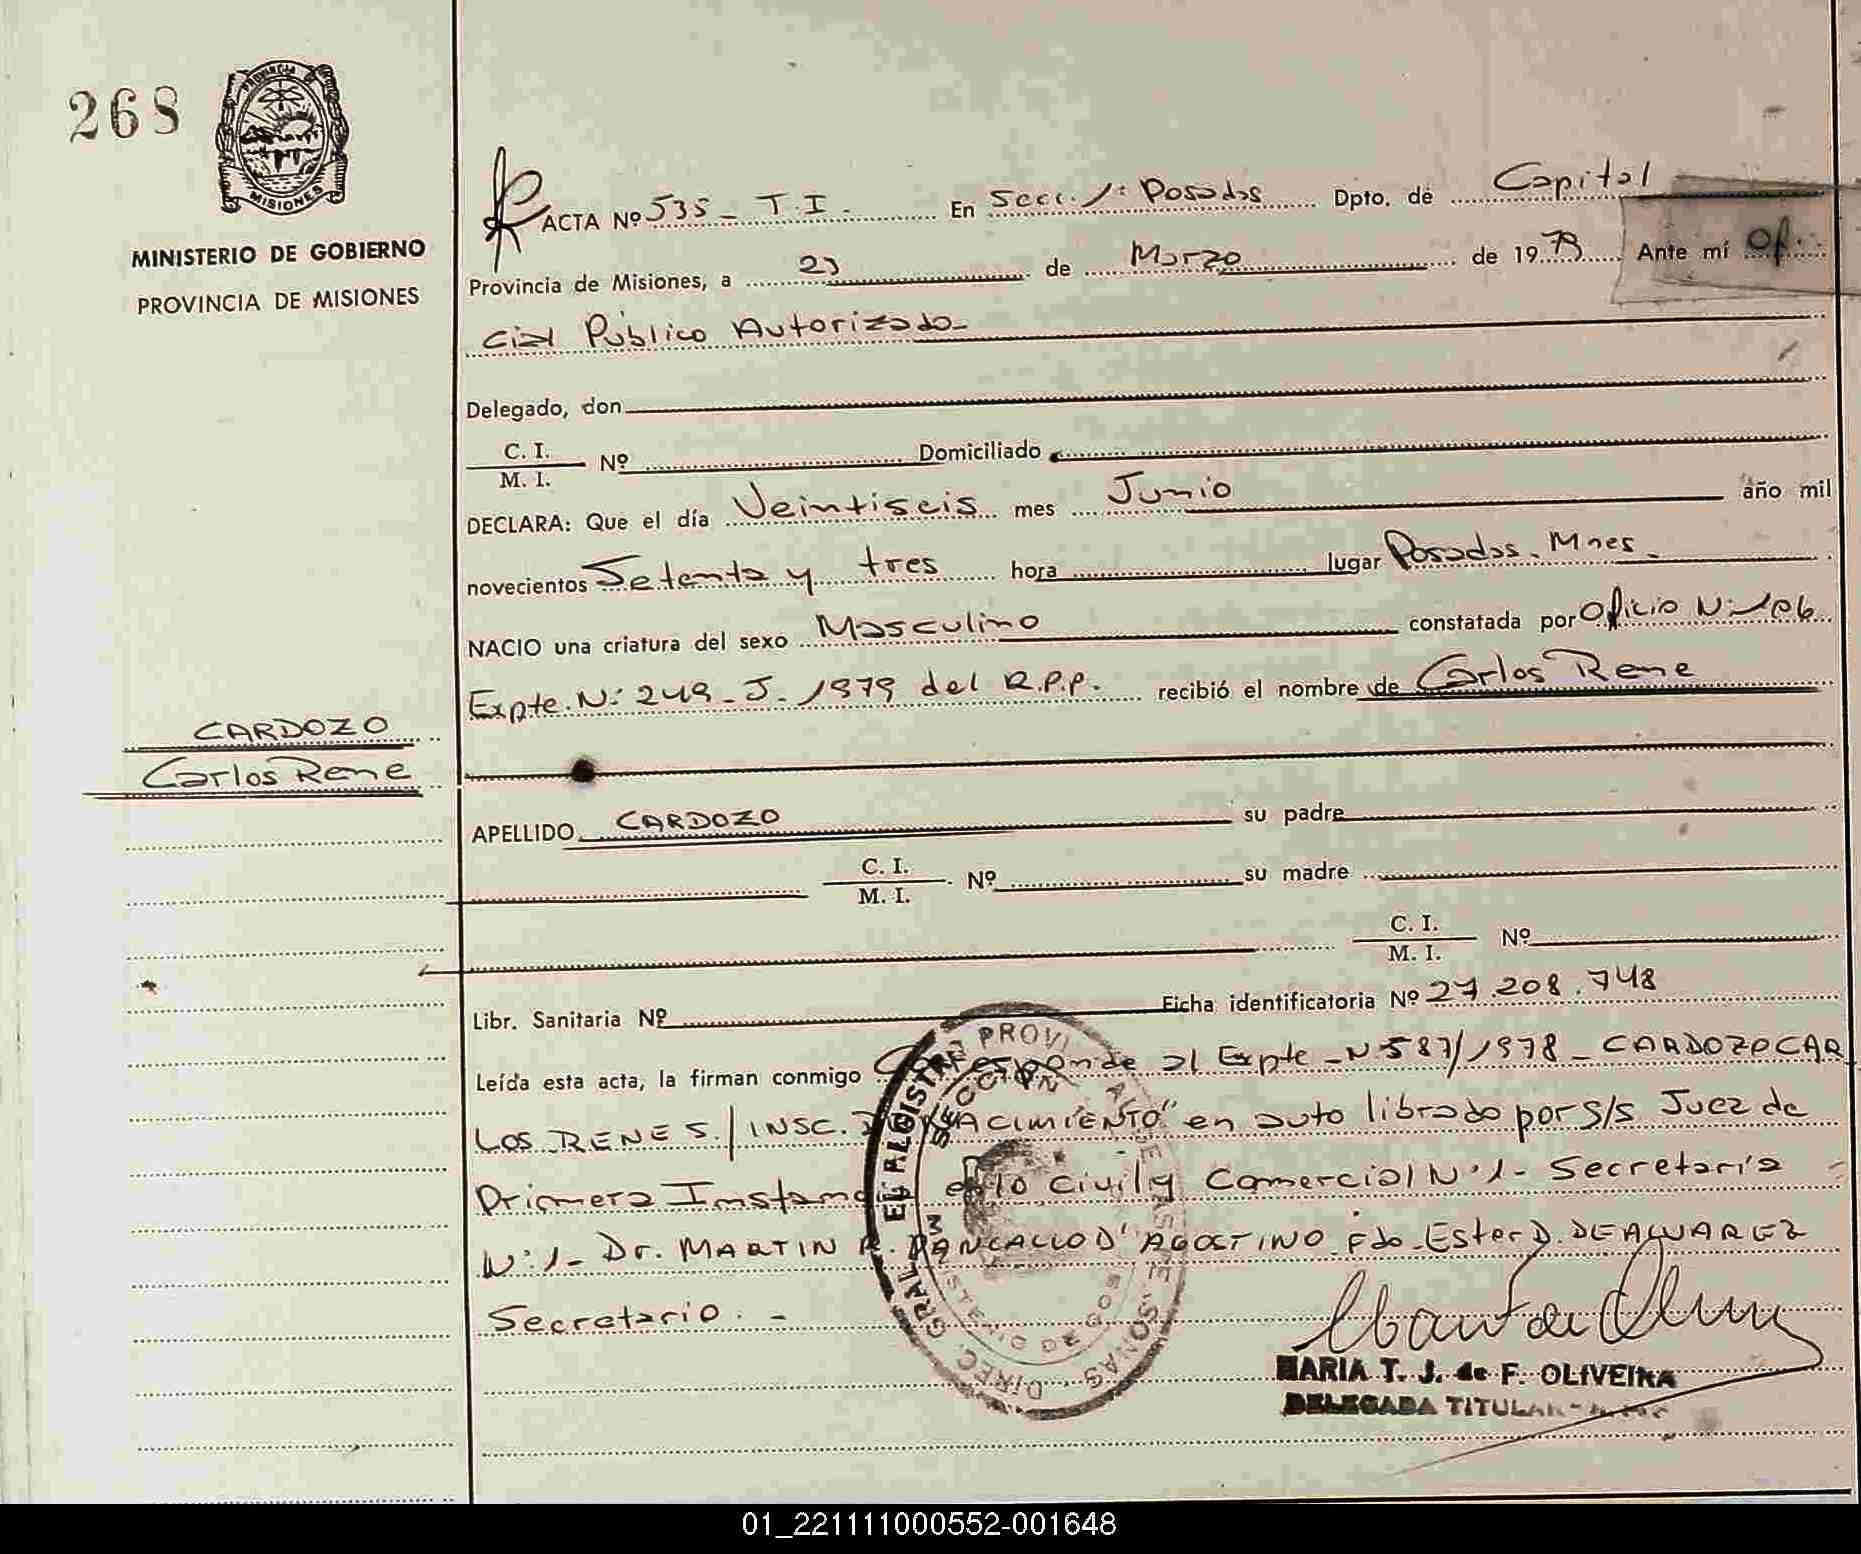 268
PROVINCIA
MISIONES
MINISTERIO DE GOBIERNO
PROVINCIA DE MISIONES
ACTA Nº 535_ T.I. En Secc. 1ª Posadas Dpto. de Capital
Provincia de Misiones, a 23 de Marzo de 1979 Ante mí Ofi.
cial Público Autorizado_
Delegado, don
C. I.
M. I.
Nº Domiciliado
DECLARA: Que el día Veintiseis mes Junio año mil
novecientos Setenta y tres hora lugar Posadas. Mnes.
NACIO una criatura del sexo Masculino constatada por Oficio N: 106
Expte. N: 249_J_1979 del R.P.P. recibió el nombre de Carlos Rene
CARDOZO
Carlos Rene
APELLIDO CARDOZO su padre
C. I.
M. I.
Nº su madre
C. I.
M. I.
Nº
Libr. Sanitaria Nº Ficha identificatoria Nº 27.208.748
Leída esta acta, la firman conmigo Corresponde al Expte_N 587/1978_CARDOZO CAR
LOS RENE S/INSC. DE NACIMIENTO" en auto librado por S/S Juez de
Primera Instancia en lo Civil y Comercial N:1- Secretaría
N:1- Dr. MARTIN A. D'AGOSTINO Fdo_Ester D. DE ALVAREZ
Secretario.-
MARIA T. J. de F. OLIVEIRA
DELEGADA TITULAR
01_221111000552-001648